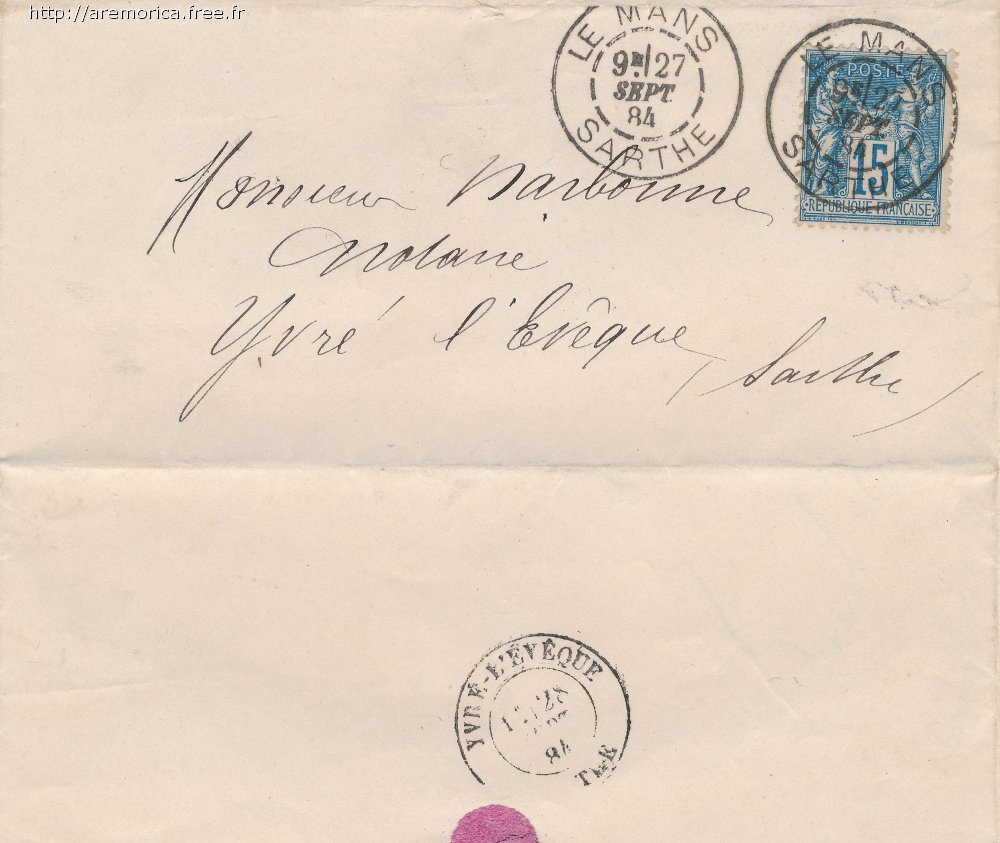 http://aremorica.free.fr
LE MANS
9E 27
SEPT
84
SARTHE
LE MANS
9E 2
SEPT
84
SAR
POSTE
15
RÉPUBLIQUE FRANÇAISE
Monsieur Narbonne
Notaire
Yvré l'Evêque, Sarthe
YVRÉ-L'ÉVÊQUE
28
84